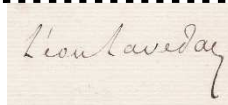 Léon Lavedan